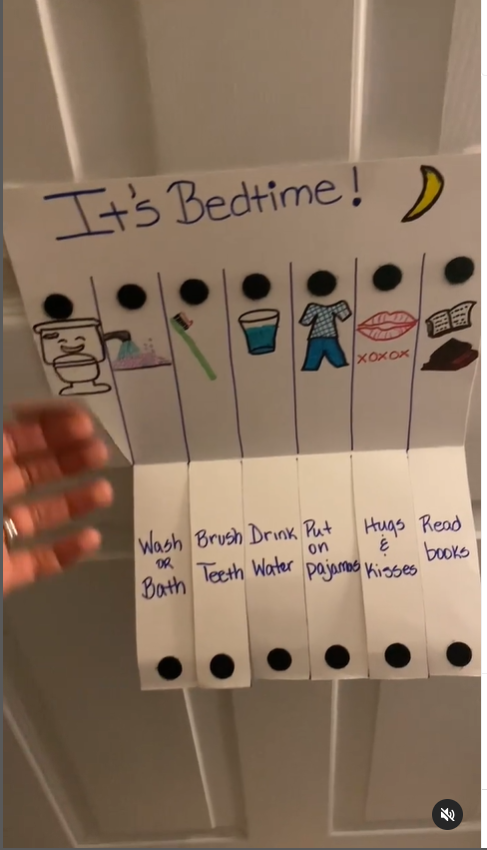 It's Bedtime!
xoxox
Wash
or
Bath
Brush
Teeth
Drink
Water
Put
on
pajamas
Hugs
&
Kisses
Read
books